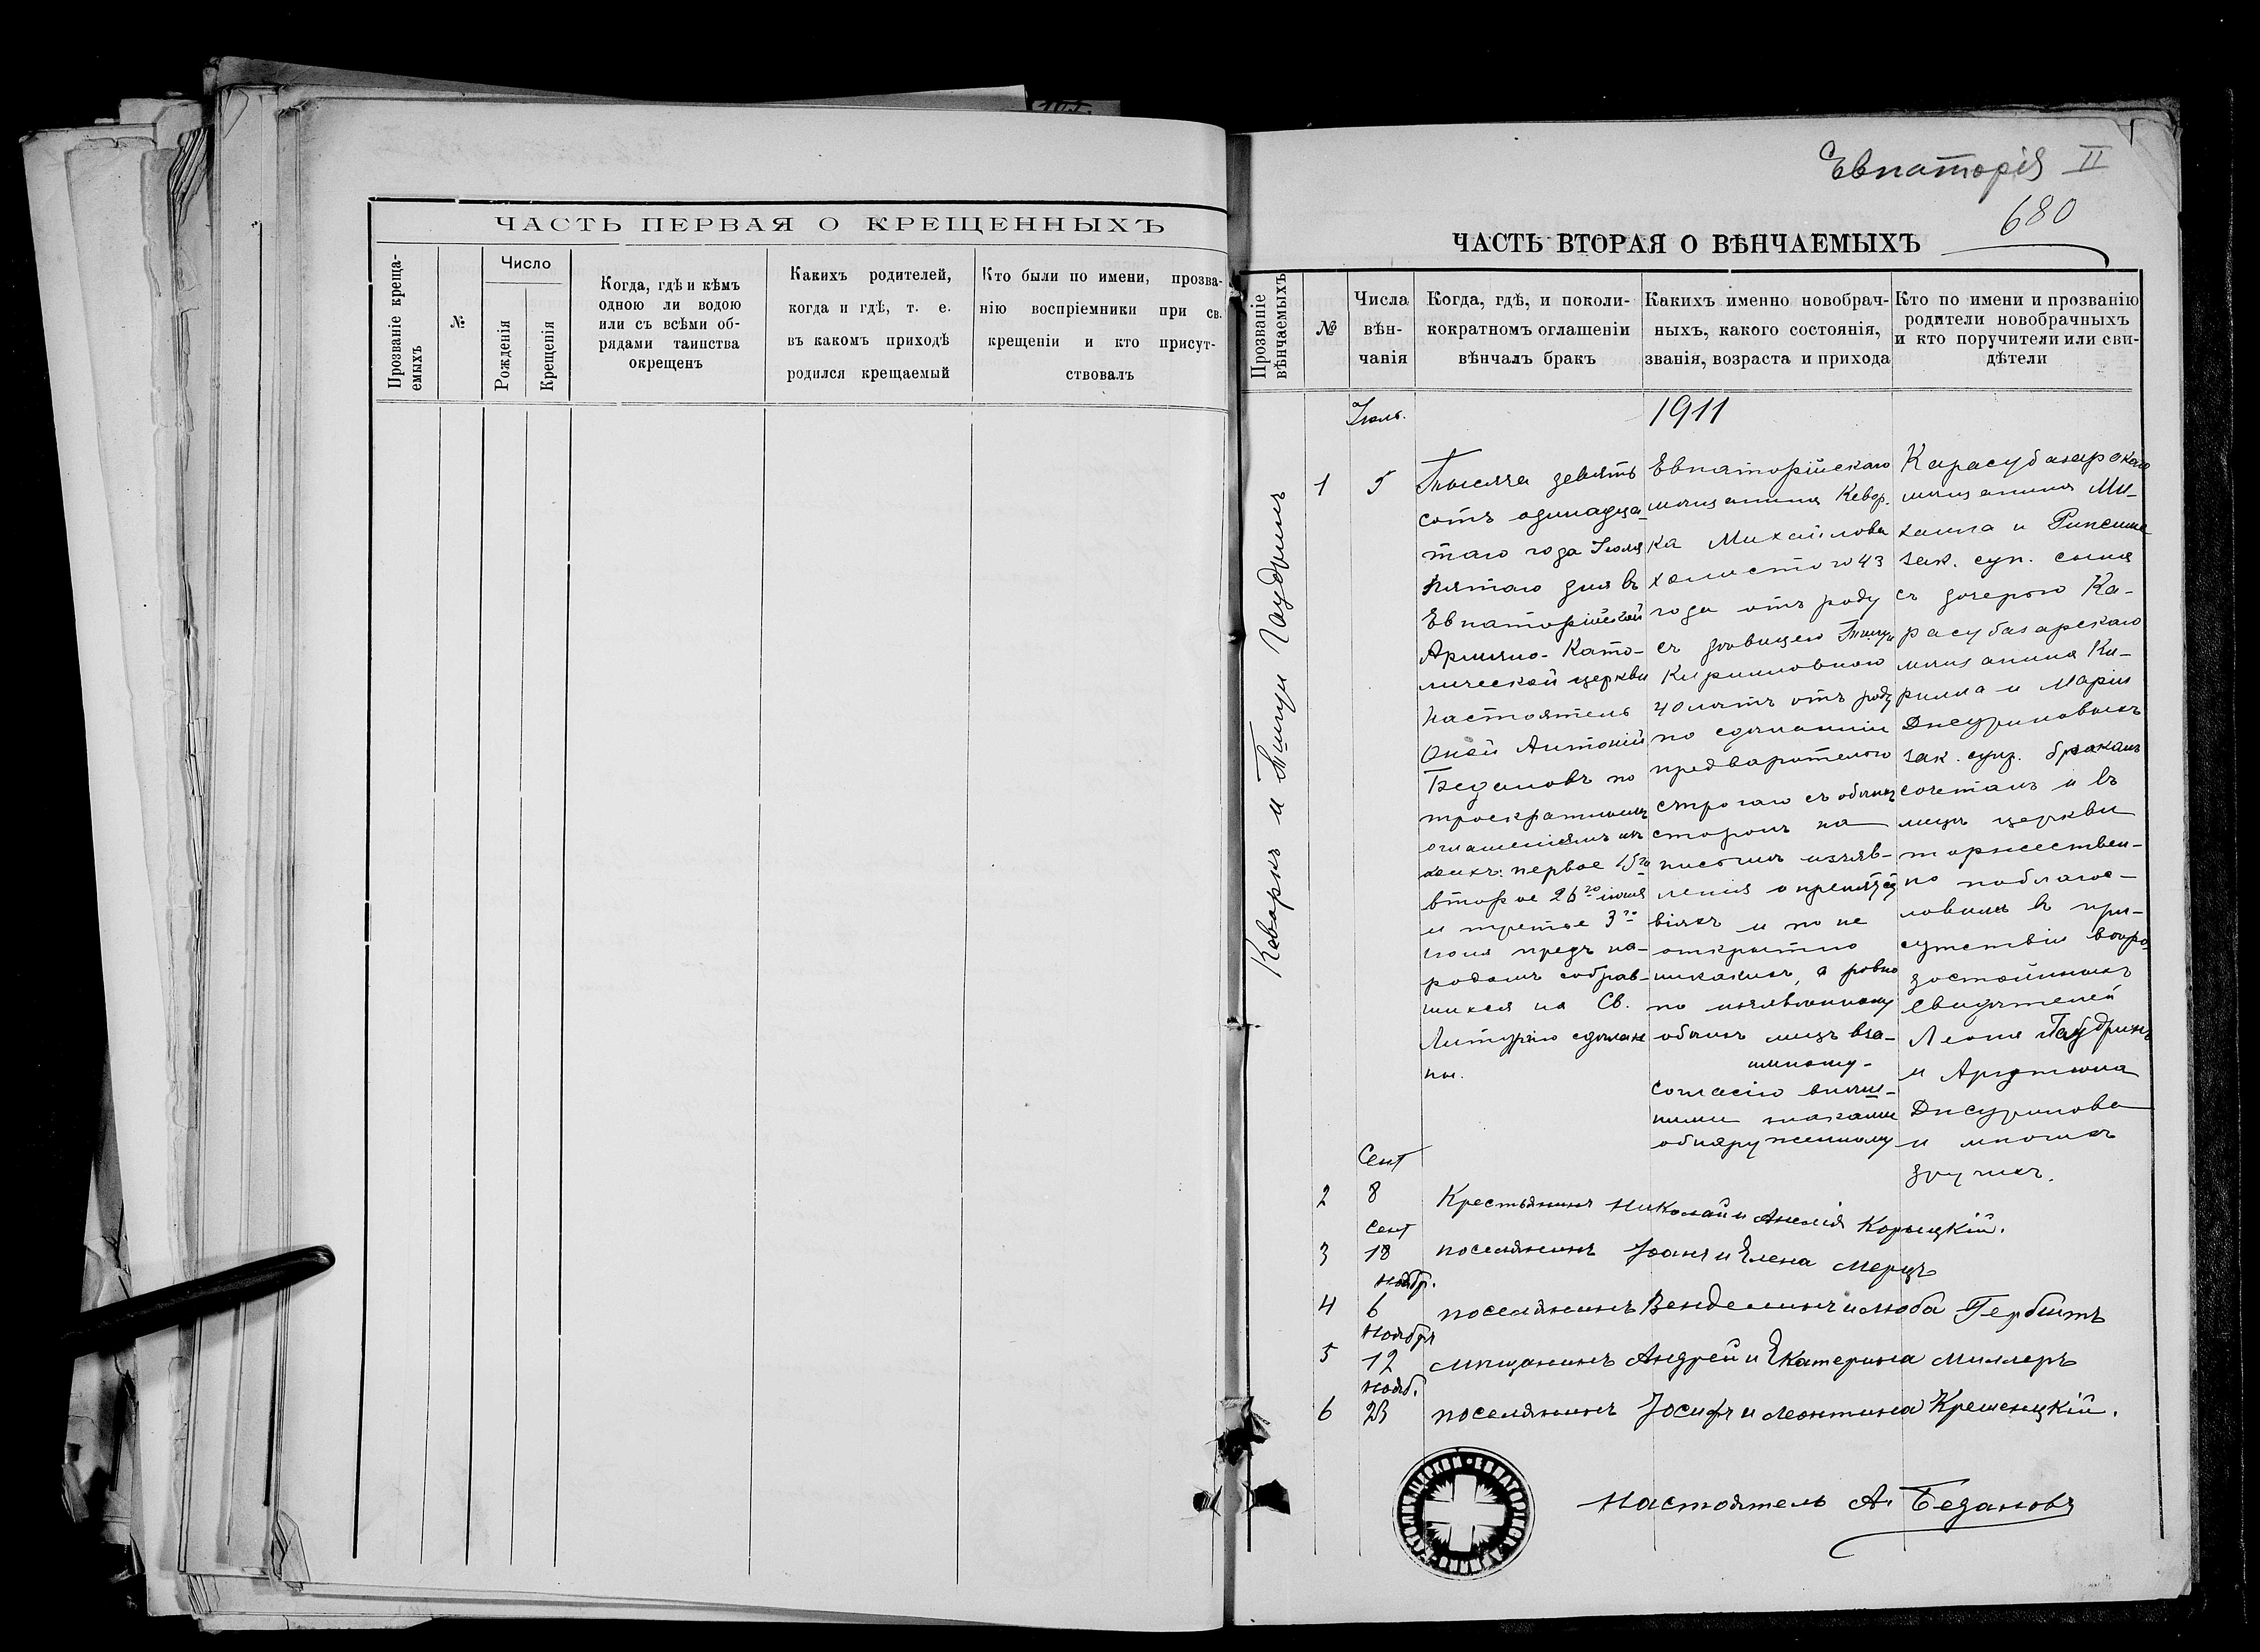 ЧАСТЬ ПЕРВАЯ О КРЕЩЕННЫХЪ
Прозваніе креща-
емыхъ
№
Число
Рожденія
Крещенія
Когда, гдѣ и кѣмъ
одною ли водою
или съ всѣми об-
рядами таинства
окрещенъ
Какихъ родителей,
когда и гдѣ, т. е.
въ какомъ приходѣ
родился крещаемый
Кто были по имени, прозва-
нію воспріемники при св.
крещеніи и кто присут-
ствовалъ
Евпаторія II
680
ЧАСТЬ ВТОРАЯ О ВѢНЧАЕМЫХЪ
Прозваніе
вѣнчаемыхъ
№
Числа
вѣн-
чанія
Когда, гдѣ, и поколи-
кократномъ оглашеніи
вѣнчалъ бракъ
Какихъ именно новобрач-
ныхъ, какого состоянія,
званія, возраста и прихода
Кто по имени и прозванію
родители новобрачныхъ
и кто поручители или сви-
дѣтели
Іюль.
1911
Кеворкъ и
1
5
Тысяча девять
сотъ одинадца-
таго года Іюля
пятаго дня въ
Евпаторійской
Армяно-Като-
лической церкви
Настоятель
Оной Антоній
Безановъ по
троекратнымъ
оглашеніямъ из
коихъ: первое 15го
второе 26го іюня
и третье 3го
іюля предъ на-
родомъ собрав-
шихся на Св.
Литургію сдѣлан
ны.
Евпаторійскаго
мѣщанина Кевор-
ка Михайлова
43
года отъ роду
съ дѣвицею
Кирилловною
40 лѣтъ отъ роду
по сдѣланіи
предварительно
строгаго съ обѣихъ
сторонъ на
письмѣ изъяв-
ленія о препятст
віяхъ и по не
открытію
никакихъ, а ровно
по изъявленному
обѣихъ лицъ вза-
имному
согласію внѣш-
ними знаками
обнаруженному
Карасубазарскаго
мѣщанина Ми-
хаила и Рипсиме
зак. суп. сына
съ дочерью Ка-
расубазарскаго
мѣщанина Ки-
рилла и Маріи
Джуриновыхъ
зак. супр. бракомъ
сочеталъ и въ
лицѣ церкви
торжествен-
но поблагос-
ловилъ въ при-
сутствіи
достойныхъ
свидѣтелей
Леона
и Арутюна
Джуринова
и многихъ
другихъ.
Сент
2
8
Крестьянинъ Николай и Анелія Корыцкій.
Сент
3
18
поселянинъ Іоанъ и Елена Мерцъ
Ноябр.
4
6
поселянинъ Венделинъ и Люба Гербштъ
Ноября
5
12
мѣщанинъ Андрей и Екатерина Миллеръ
Нояб.
6
23
поселянинъ Іосифъ и Леонтина Кременецкій.
Настоятель А. Безановъ